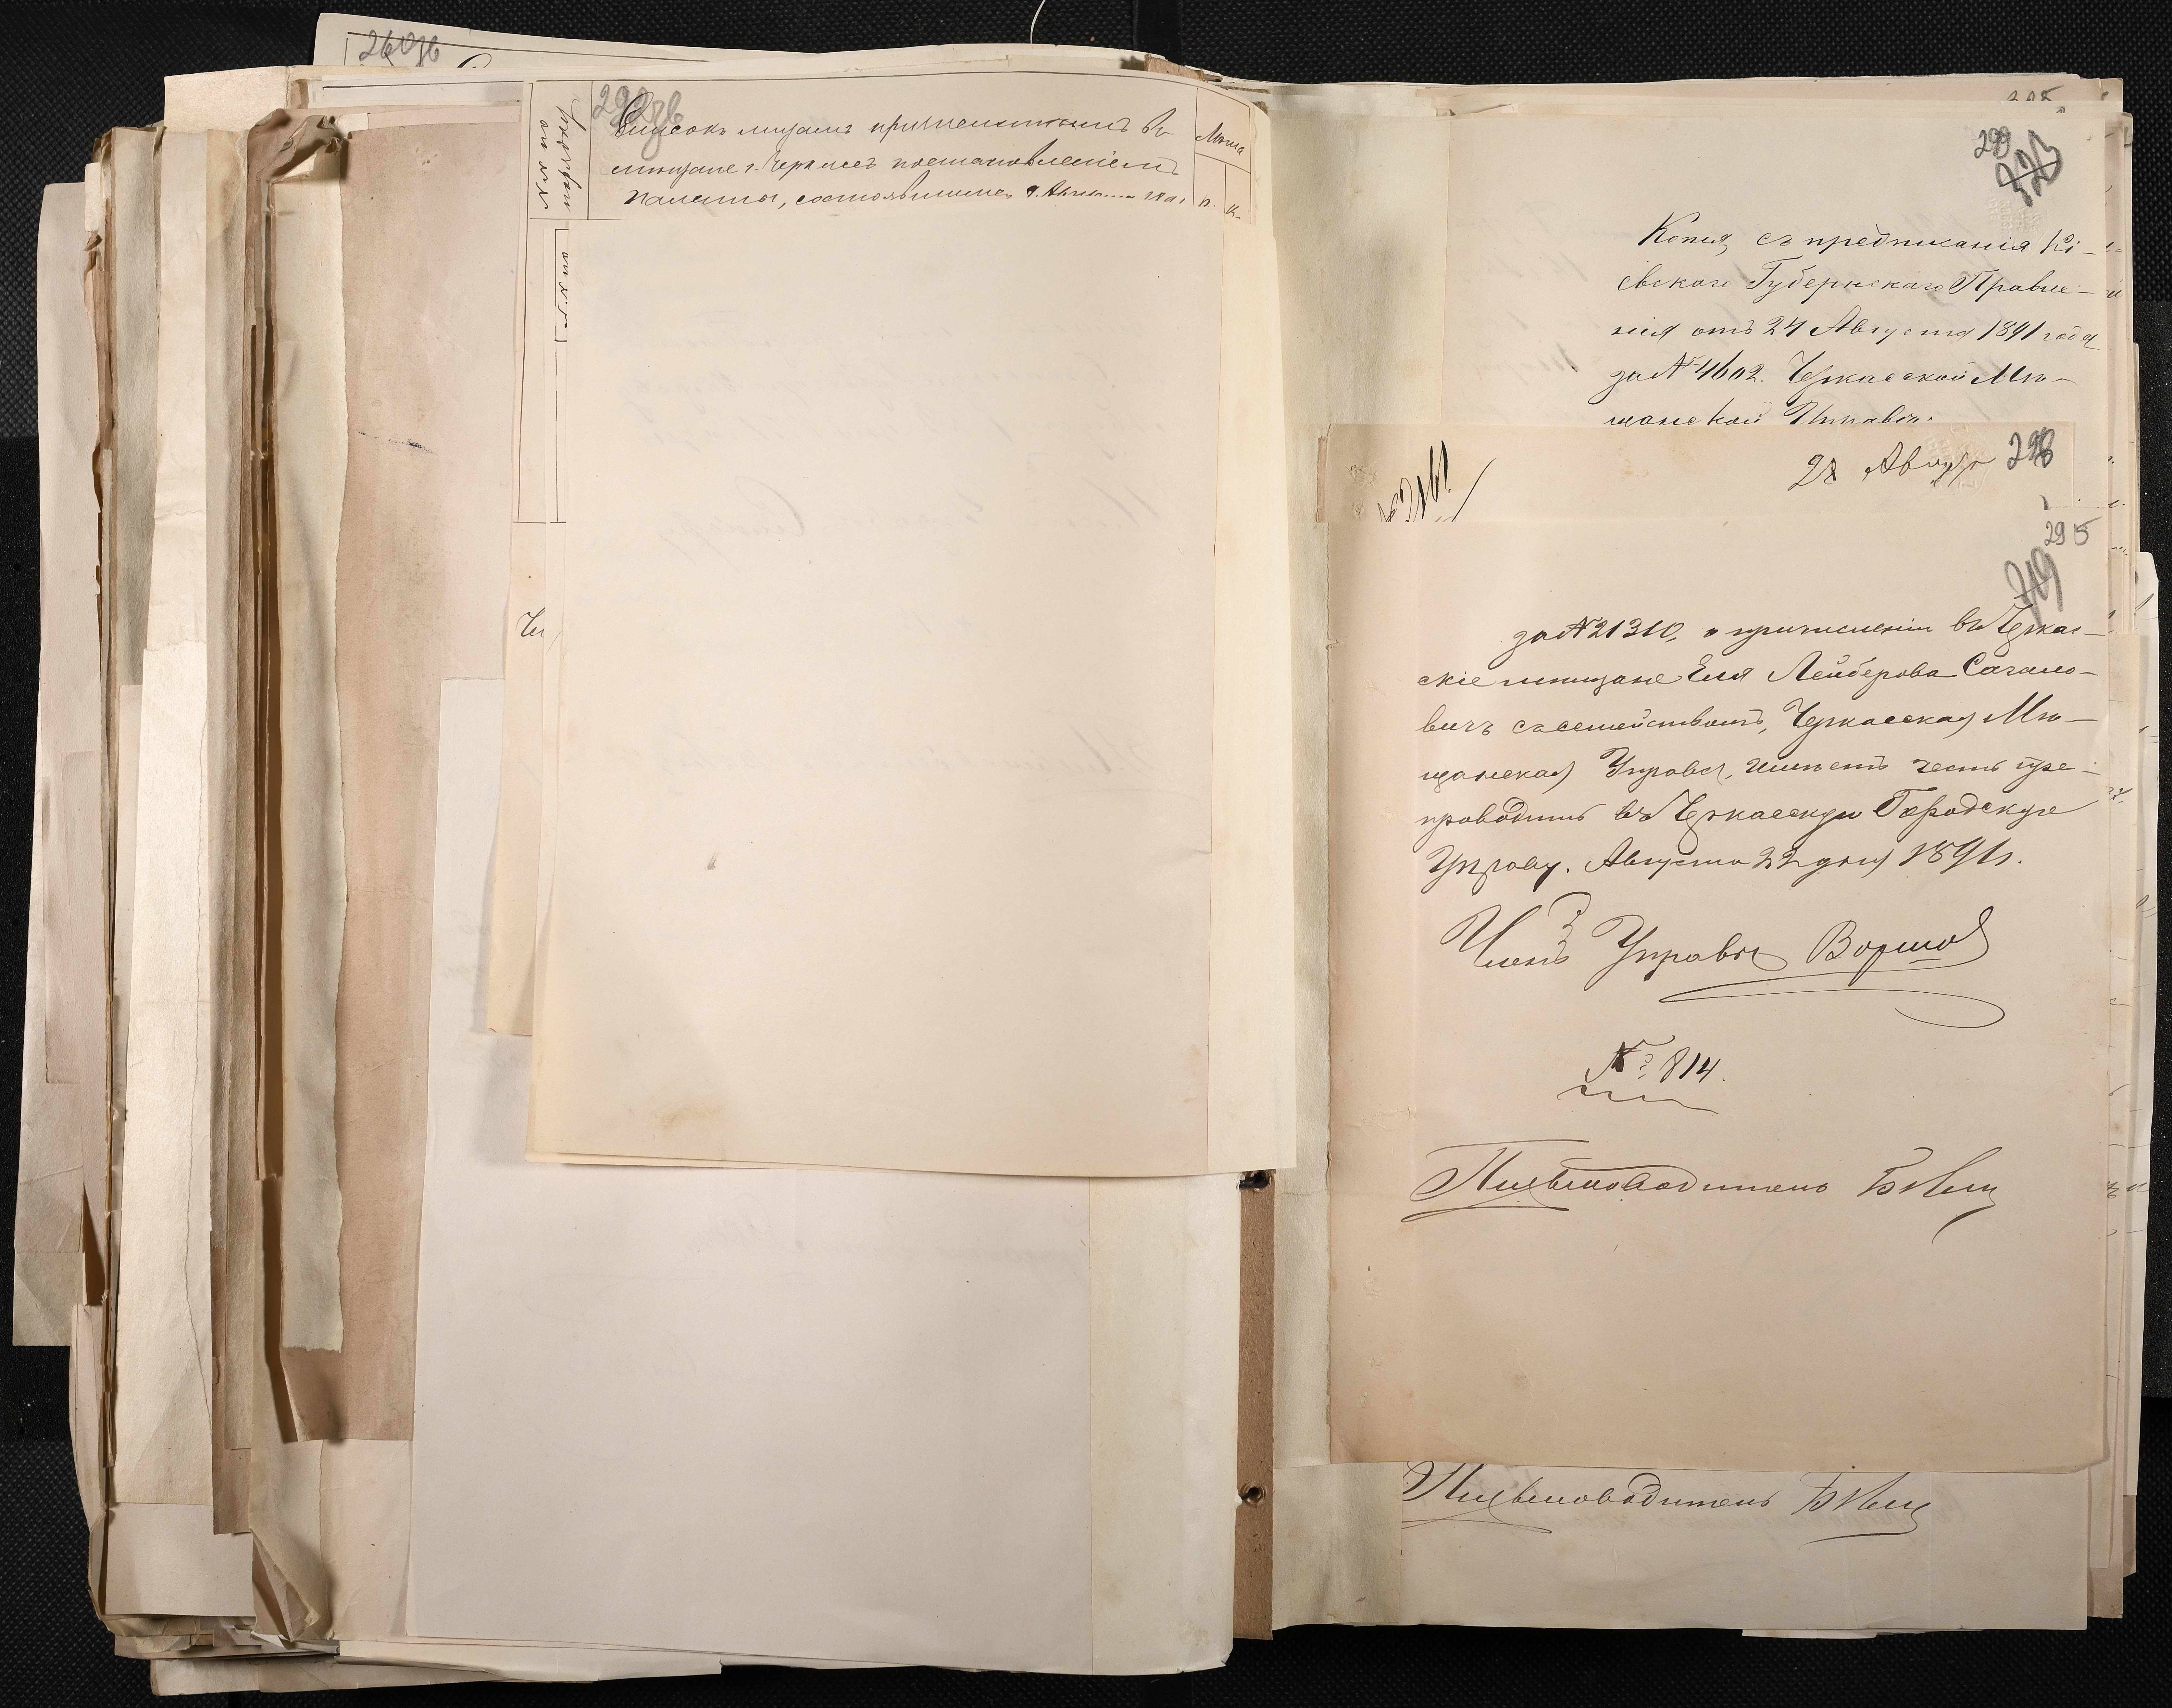 260об
292об
Списокъ лицамъ причисленнымъ въ
мѣщане г. Черкасъ постановленіемъ
Палаты, состоявшимся 9. Августа 1891
Лѣта
299
323
Копія съ предписанія Кі-
евскаго Губернскаго Правле-
нія отъ 24 Августа 1891 года
за № 4602. Черкасской Мѣ-
щанской Управѣ.
28 Август 298
№ 2161
295
319
за № 21310, о причисленіи въ Черкас-
скіе мѣщане Еля Лейберова Сагало-
вичъ съ семействомъ, Черкасская Мѣ-
щанская Управа, имѣетъ честь пре-
проводить въ Черкасскую Городскую
Управу. Августа 22 дня 1891 г.
Членъ Управы
№ 814.
Письмоводитель
Письмоводитель